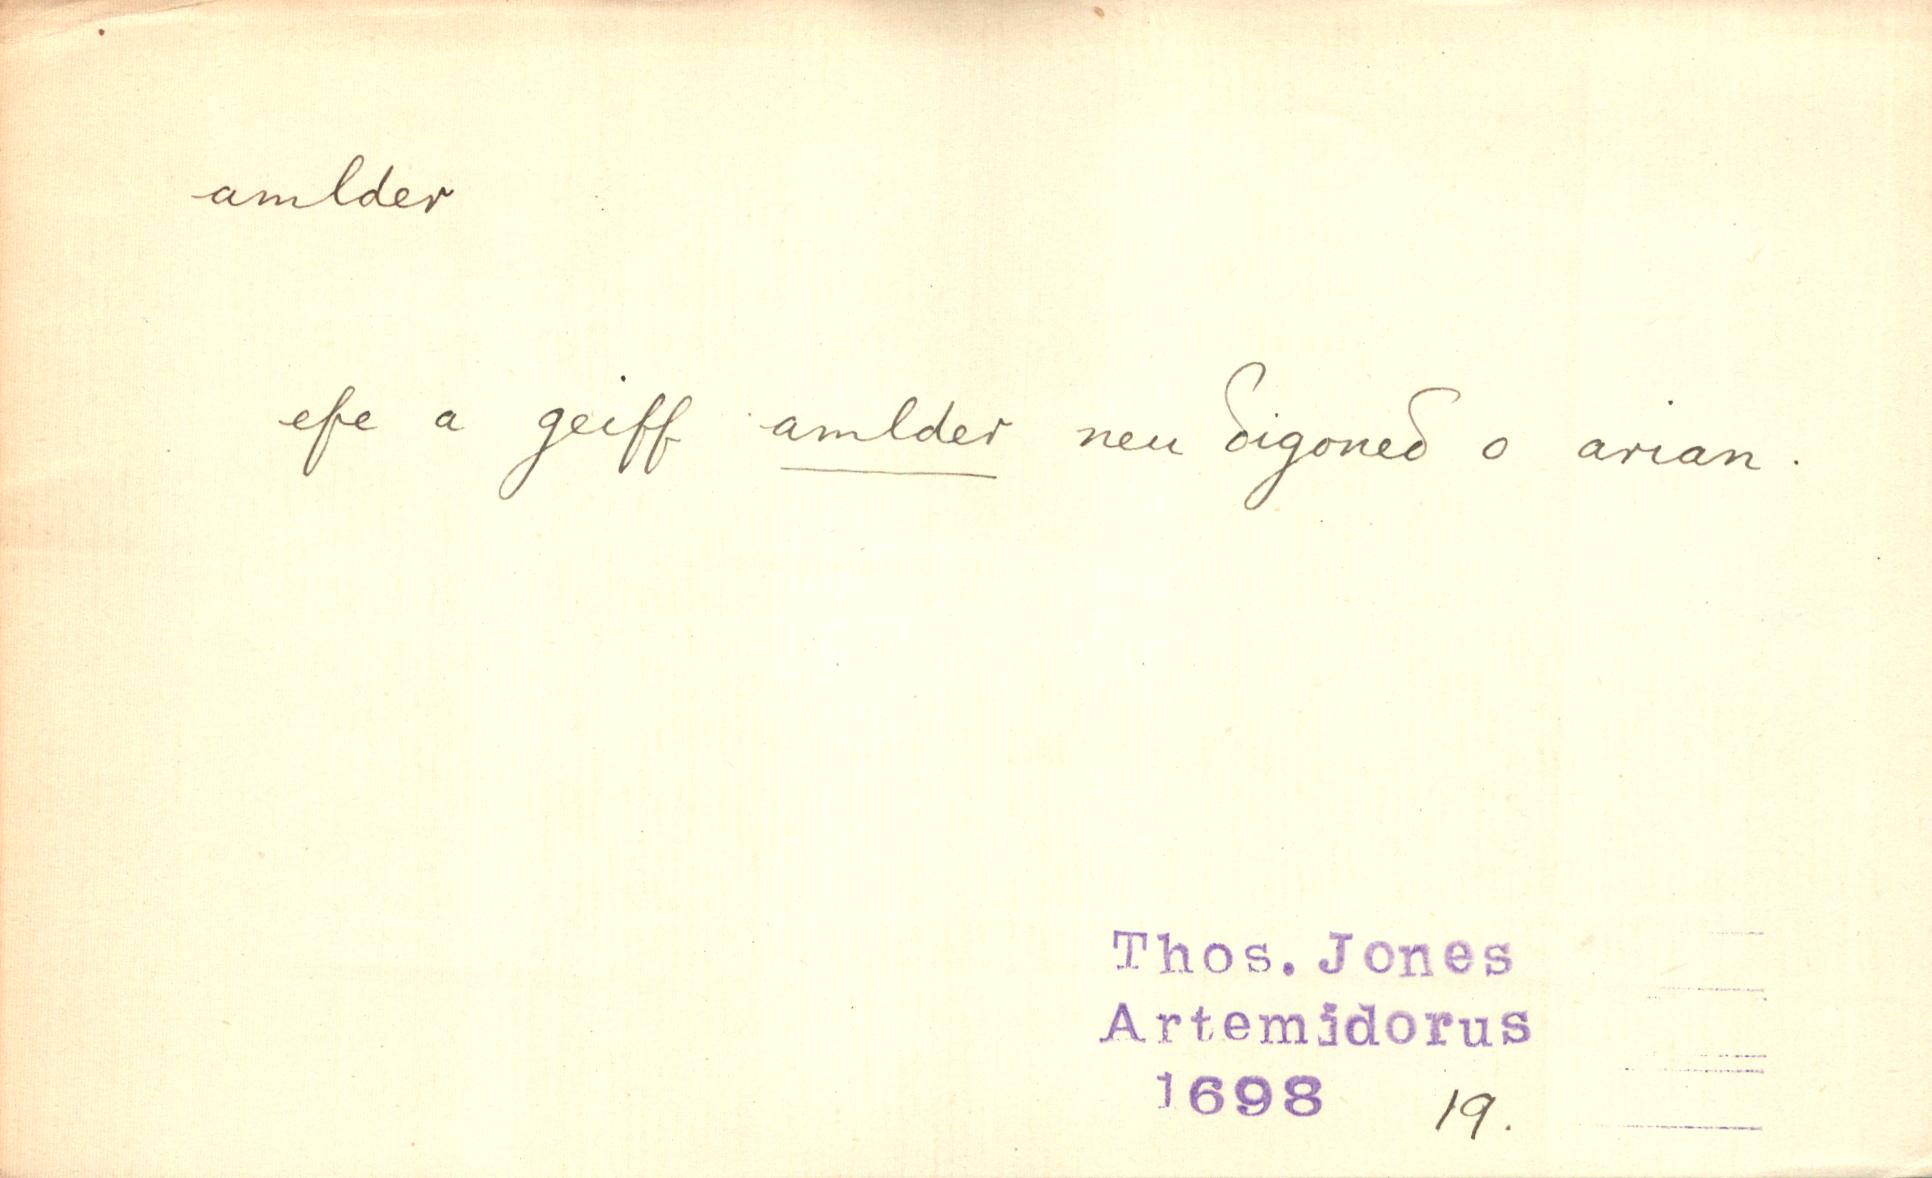 amlder
efe a geiff amlder neu δigoneδ o arian.
Thos. Jones
Artemidorus
1698 19.